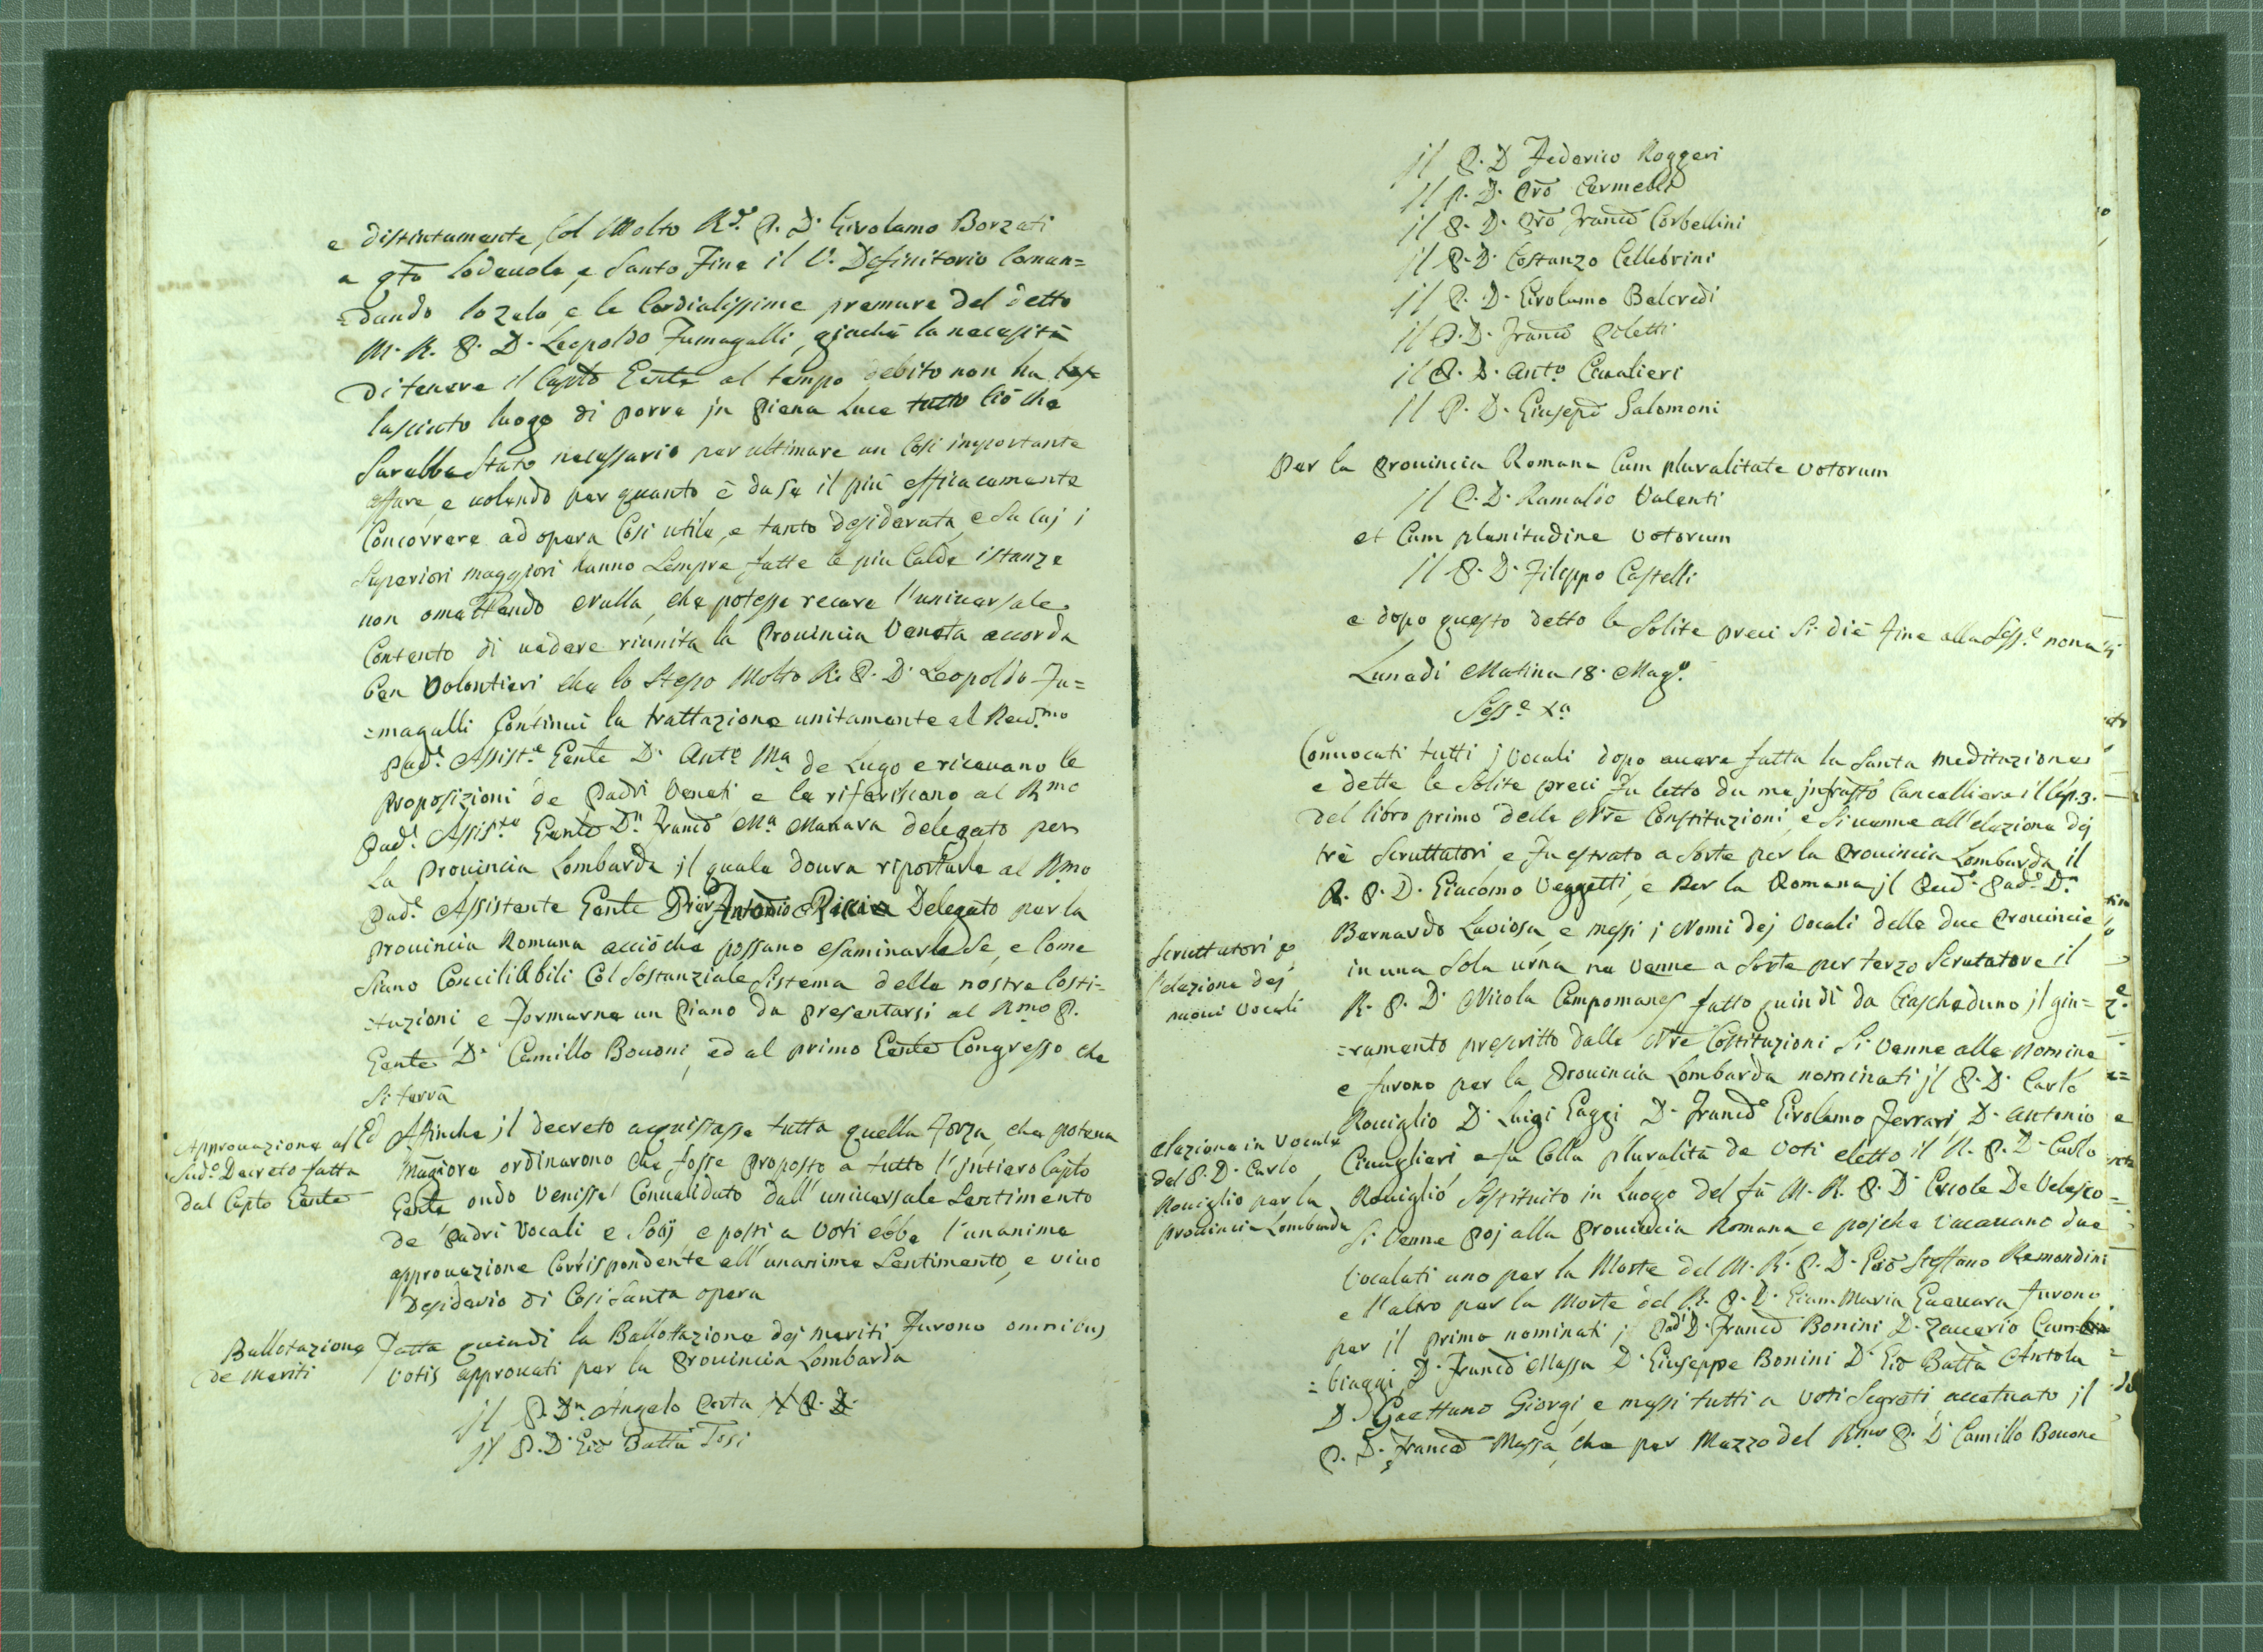 e distintamente, col Molto Rdo. P. D. Girolamo Borzati
a qto lodevole, e Santo Fine il V. Definitorio Coman=
=dando lo zelo, e le Cordialissime premure del detto
M. R. P. D. Leopoldo Fumagalli, giachè la necessità
di tenere il Capto Gente al tempo debito non ha
lasciato luogo di porre in Piena Luce tutto Ciò che
Sarebbe Stato necessario per ultimare un Cosi importante
affare, e volendo per quanto è da se il più efficacemente
Concorrere ad opera Cosi utile, e tanto desiderata, e da cuj i
Superiori maggiori hanno Sempre fatte le piu Calde istanze
non omettendo nulla, che potesse recare l'universale
Contento di vedere riunita la Provincia Veneta accorda
ben Volontieri che lo Stesso Molto R. P. D. Leopoldo Fu=
=magalli Continui la trattazione unitamente al Revd.mo
Pad.e Assist.e Gente D. Anto Ma de Lugo e ricevano le
Proposizioni de Padri Veneti e le riferiscano al Rmo
Pad.e Assis.te Gente Dn. Franco Ma Manara delegato per
La Provincia Lombarda il quale dovra riportarle al Rmo
Pad.e Assistente Gente Pier Antonio Ricci Delegato per la
Provincia Romana acciò che possano esaminarle Se, e Come
Siano Concilibili Col Sostanziale Sistema delle nostre Costi=
=tuzioni e Formarne un Piano da Presentarsi al Rmo P.
Gente D. Camillo Bovoni, ed al primo Gente Congresso che
Si terrà
Approvazione al Ed
Sud.o Decreto fatta
dal Capto Gente
Affinche il decreto acquistasse tutta quella Forza, che poteva
Magiore ordinarono che fosse proposto a tutto l'jntiero Capto
Gente ondo Venisse Convalidato dall'universale Sentimento
de Padri Vocali e Socij e posti a Voti ebbe l'unanime
approvazione Corrispondente all'unanime Sentimento, e vivo
Desiderio di Cosi Santa opera
Ballotazione
de Meriti
Fatta quindi la Ballottazione dej meriti Furono omnibus
Votis approvati per la Provincia Lombarda
jl P. Dn. Angelo Costa
jl P. D. Gio Batta Tosi
jl P. D. Federico Roggeri
jl P. D. Pro
jl P. D. Pro Franco Corbellini
jl P. D. Costanzo Cellebrini
jl P. D. Girolamo Belcredi
jl P. D. Franco Poletti
jl P. D. Anto Cavalieri
jl P. D. Giusepe Salomoni
Per la Provincia Romana Cum pluralitate votorum
jl P. D. Ramaldo Valenti
et Cum plenitudine Votorum
jl P. D. Filippo Castelli
e dopo questo detto le Solite preci Si diè fine alla Sess.e nona
Lunedi Matina 18. Mago.
Sess.e Xa
Convocati tutti j Vocali dopo avere fatta la Santa meditazione
e dette le Solite preci Fu letto da me jnfratto Cancelliere il Cap. 3.
del libro primo delle Nre Constituzioni, e Si venne all'elezione dej
tre Scruttatori e Fu estrato a Sorte per la Provincia Lombarda il
R. P. D. Giacomo Veggetti, e Per la Romana jl Revd. Pad.e Dn
Bernardo Laviosa, e messi j Nomi dej Vocali delle due Provincie
Scruttatori p
l'elezione dej
nuovi Vocali
in una Sola urna ne Venne a Sorte per terzo Scrutatore il
R. P. D. Nicola Campomanes fatto quindi da Ciascheduno jl giu=
=ramento prescritto dalle Nre Costituzioni Si Venne alle Nomine
e furono per la Provincia Lombarda nominati jl P. D. Carlo
Roviglio D. Luigi Gaggi D. Franco Girolamo Ferrari D. Antonio
elezione in Vocale
del P. D. Carlo
Roviglio per la
Provincia Lombarda
e fu Colla pluralità de Voti eletto il R. P. D. Carlo
Roviglio Sostituito in Luogo del fù M. R. P. D. Ercole De Velasco
Si Venne poj alla Provincia Romana e pojche Vacavano due
Vocalati uno per la Morte del M. R. P. D. Gio Steffano Remondini
e l'altro per la Morte del R. P. D. Giam Maria Guevara Furono
per il primo nominati jl Pad. D. Franco Bonini D. Zaccaria Cam
=biaggi D. Franco Massa D. Giuseppe Bonini D. Gio Batta Antola
D. Gaettano Giorgi, e messi tutti a Voti Segreti accetuato jl
P. D. Franco Massa, che per Mezzo del Rmo P. D. Camillo Bovone